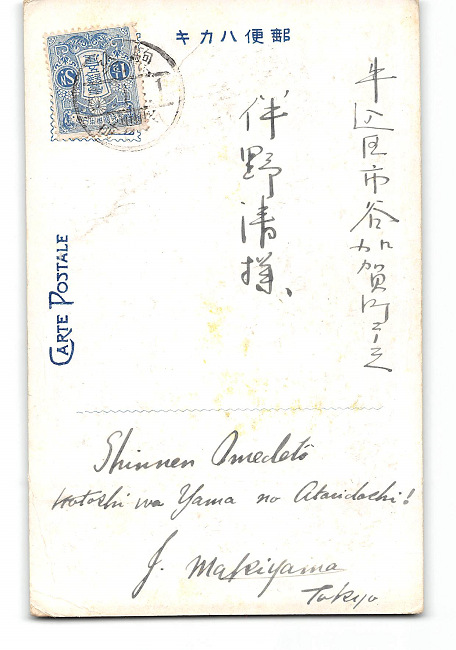 郵便ハカキ
牛込区市谷加賀町
伴野清様
CARTE POSTALE
Shinnen Omedetō
Kotoshi wa Yama no Ataridoshi!
J. Makiyama
Tokyo